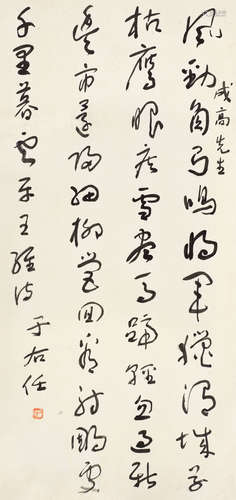 成高先生
風勁角弓鳴將軍獵渭城草
枯鷹眼疾雪盡馬蹄輕忽過新
豐市還歸細柳營回看射鵰處
千里暮雲平王維詩
于右任